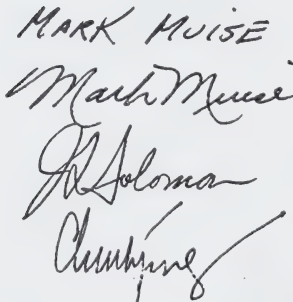 MARK MUISE
Mark Muise
J Solomon